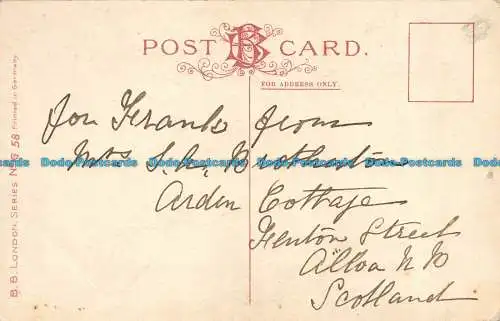 POST CARD.
FOR ADDRESS ONLY.
B.B. LONDON. SERIES No. G 58 Printed in Germany
For Frank from
Mrs S. R. Brotherston
Arden Cottage
Fenton Street
Alloa N B
Scotland
Dodo-Postcards Dodo-Postcards Dodo-Postcards Dodo-Postcards Dodo-Postcards